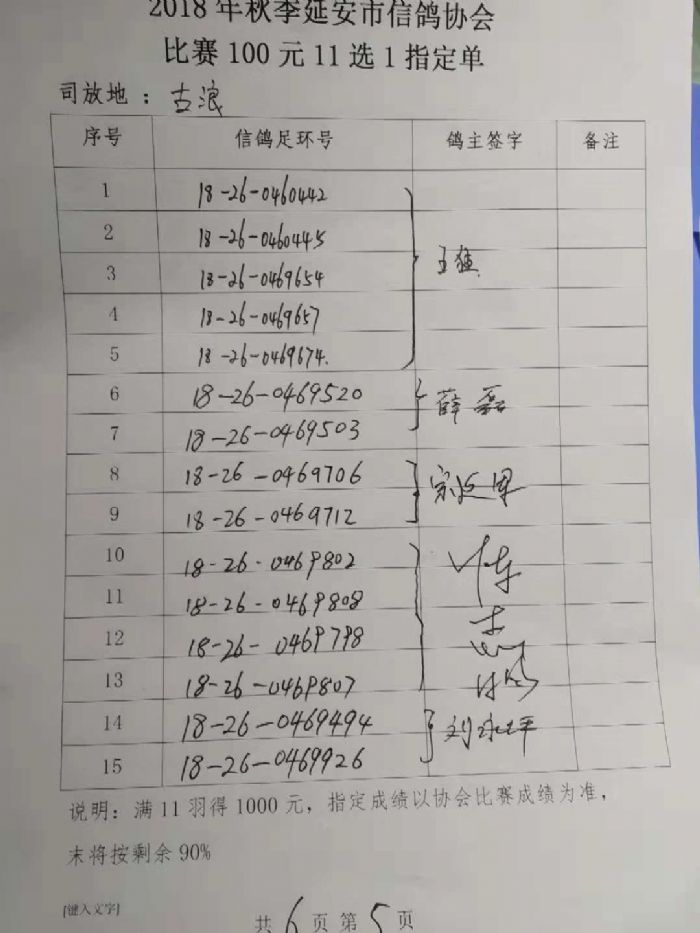 2018 年秋季延安市信鸽协会
比赛 100 元 11 选 1 指定单
司放地 : 古浪
序号 信鸽足环号 鸽主签字 备注
1 18-26-0460442
2 18-26-0460445
3 18-26-0469654
4 18-26-0469657
5 18-26-0469674.
6 18-26-0469520 薛磊
7 18-26-0469503
8 18-26-0469706
9 18-26-0469712
10 18-26-0469802
11 18-26-0469808
12 18-26-0469798
13 18-26-0469807
14 18-26-0469494
15 18-26-0469926
说明: 满 11 羽得 1000 元, 指定成绩以协会比赛成绩为准,
末将按剩余 90%
[键入文字]
共 6 页 第 5 页